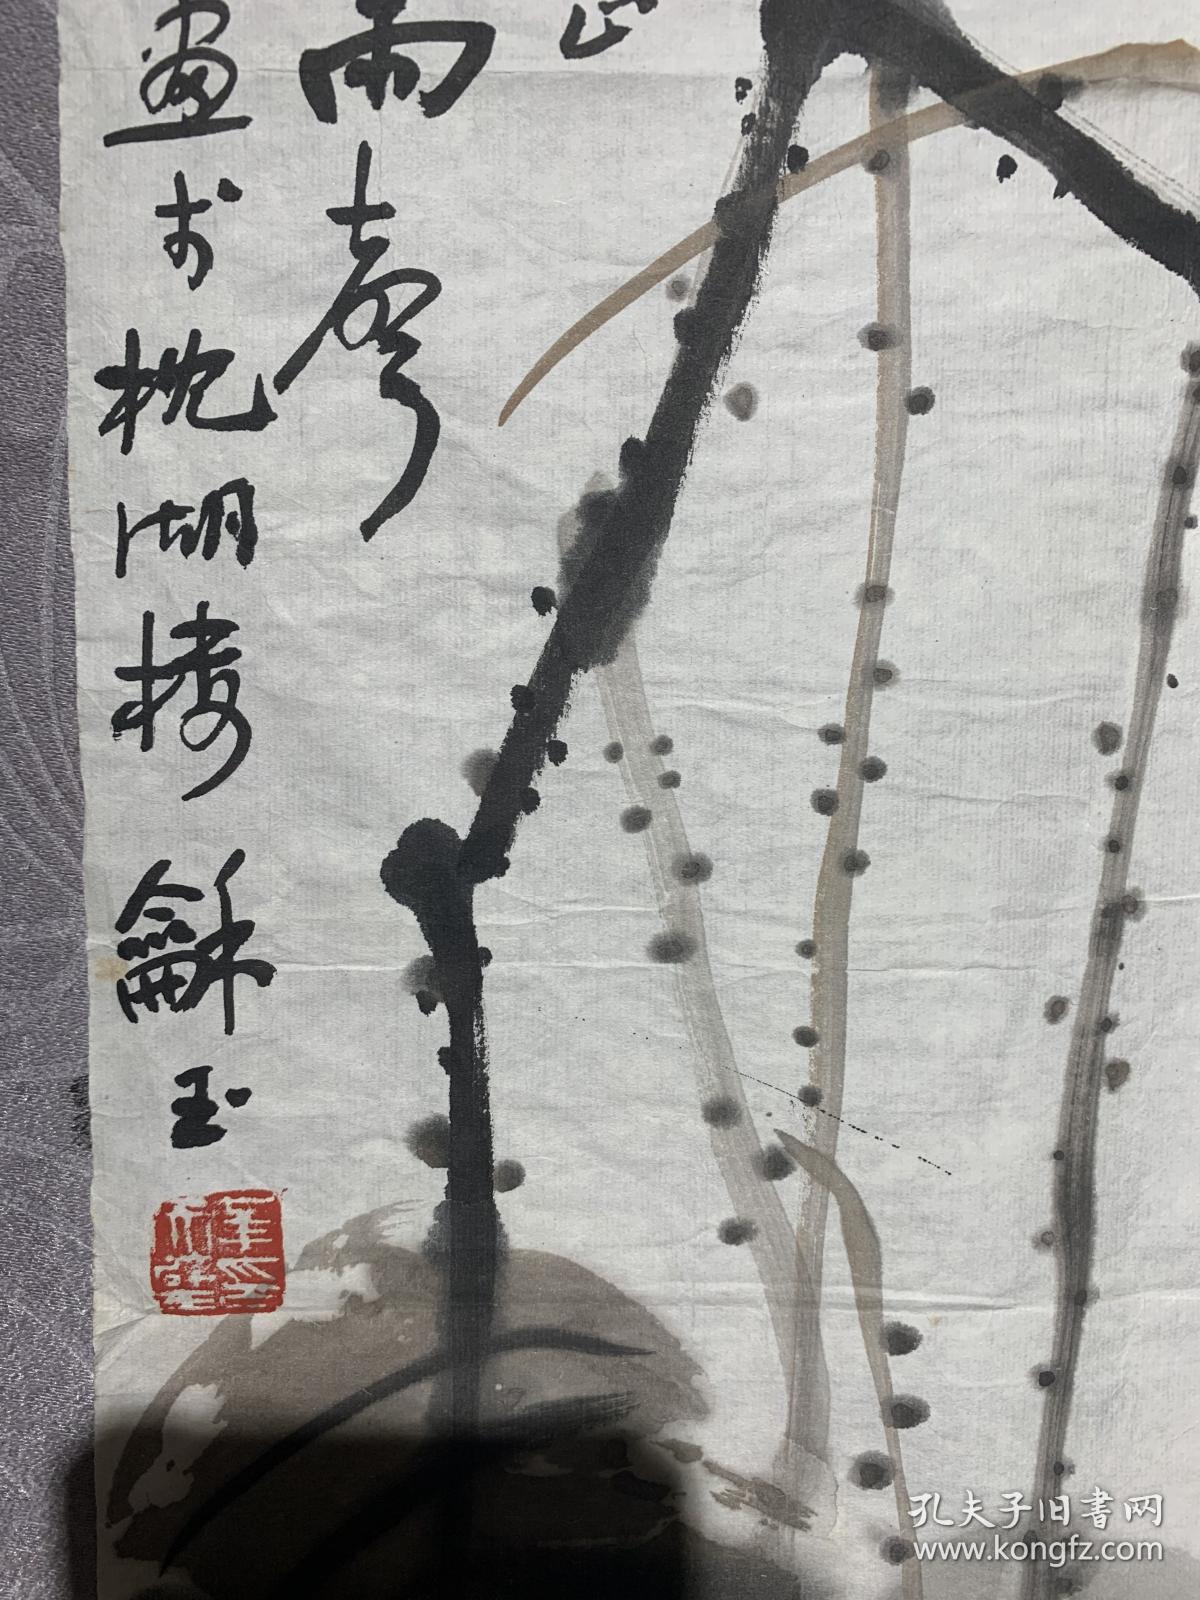 雨声
画于枕湖楼龢玉
孔夫子旧書网
www.kongfz.com